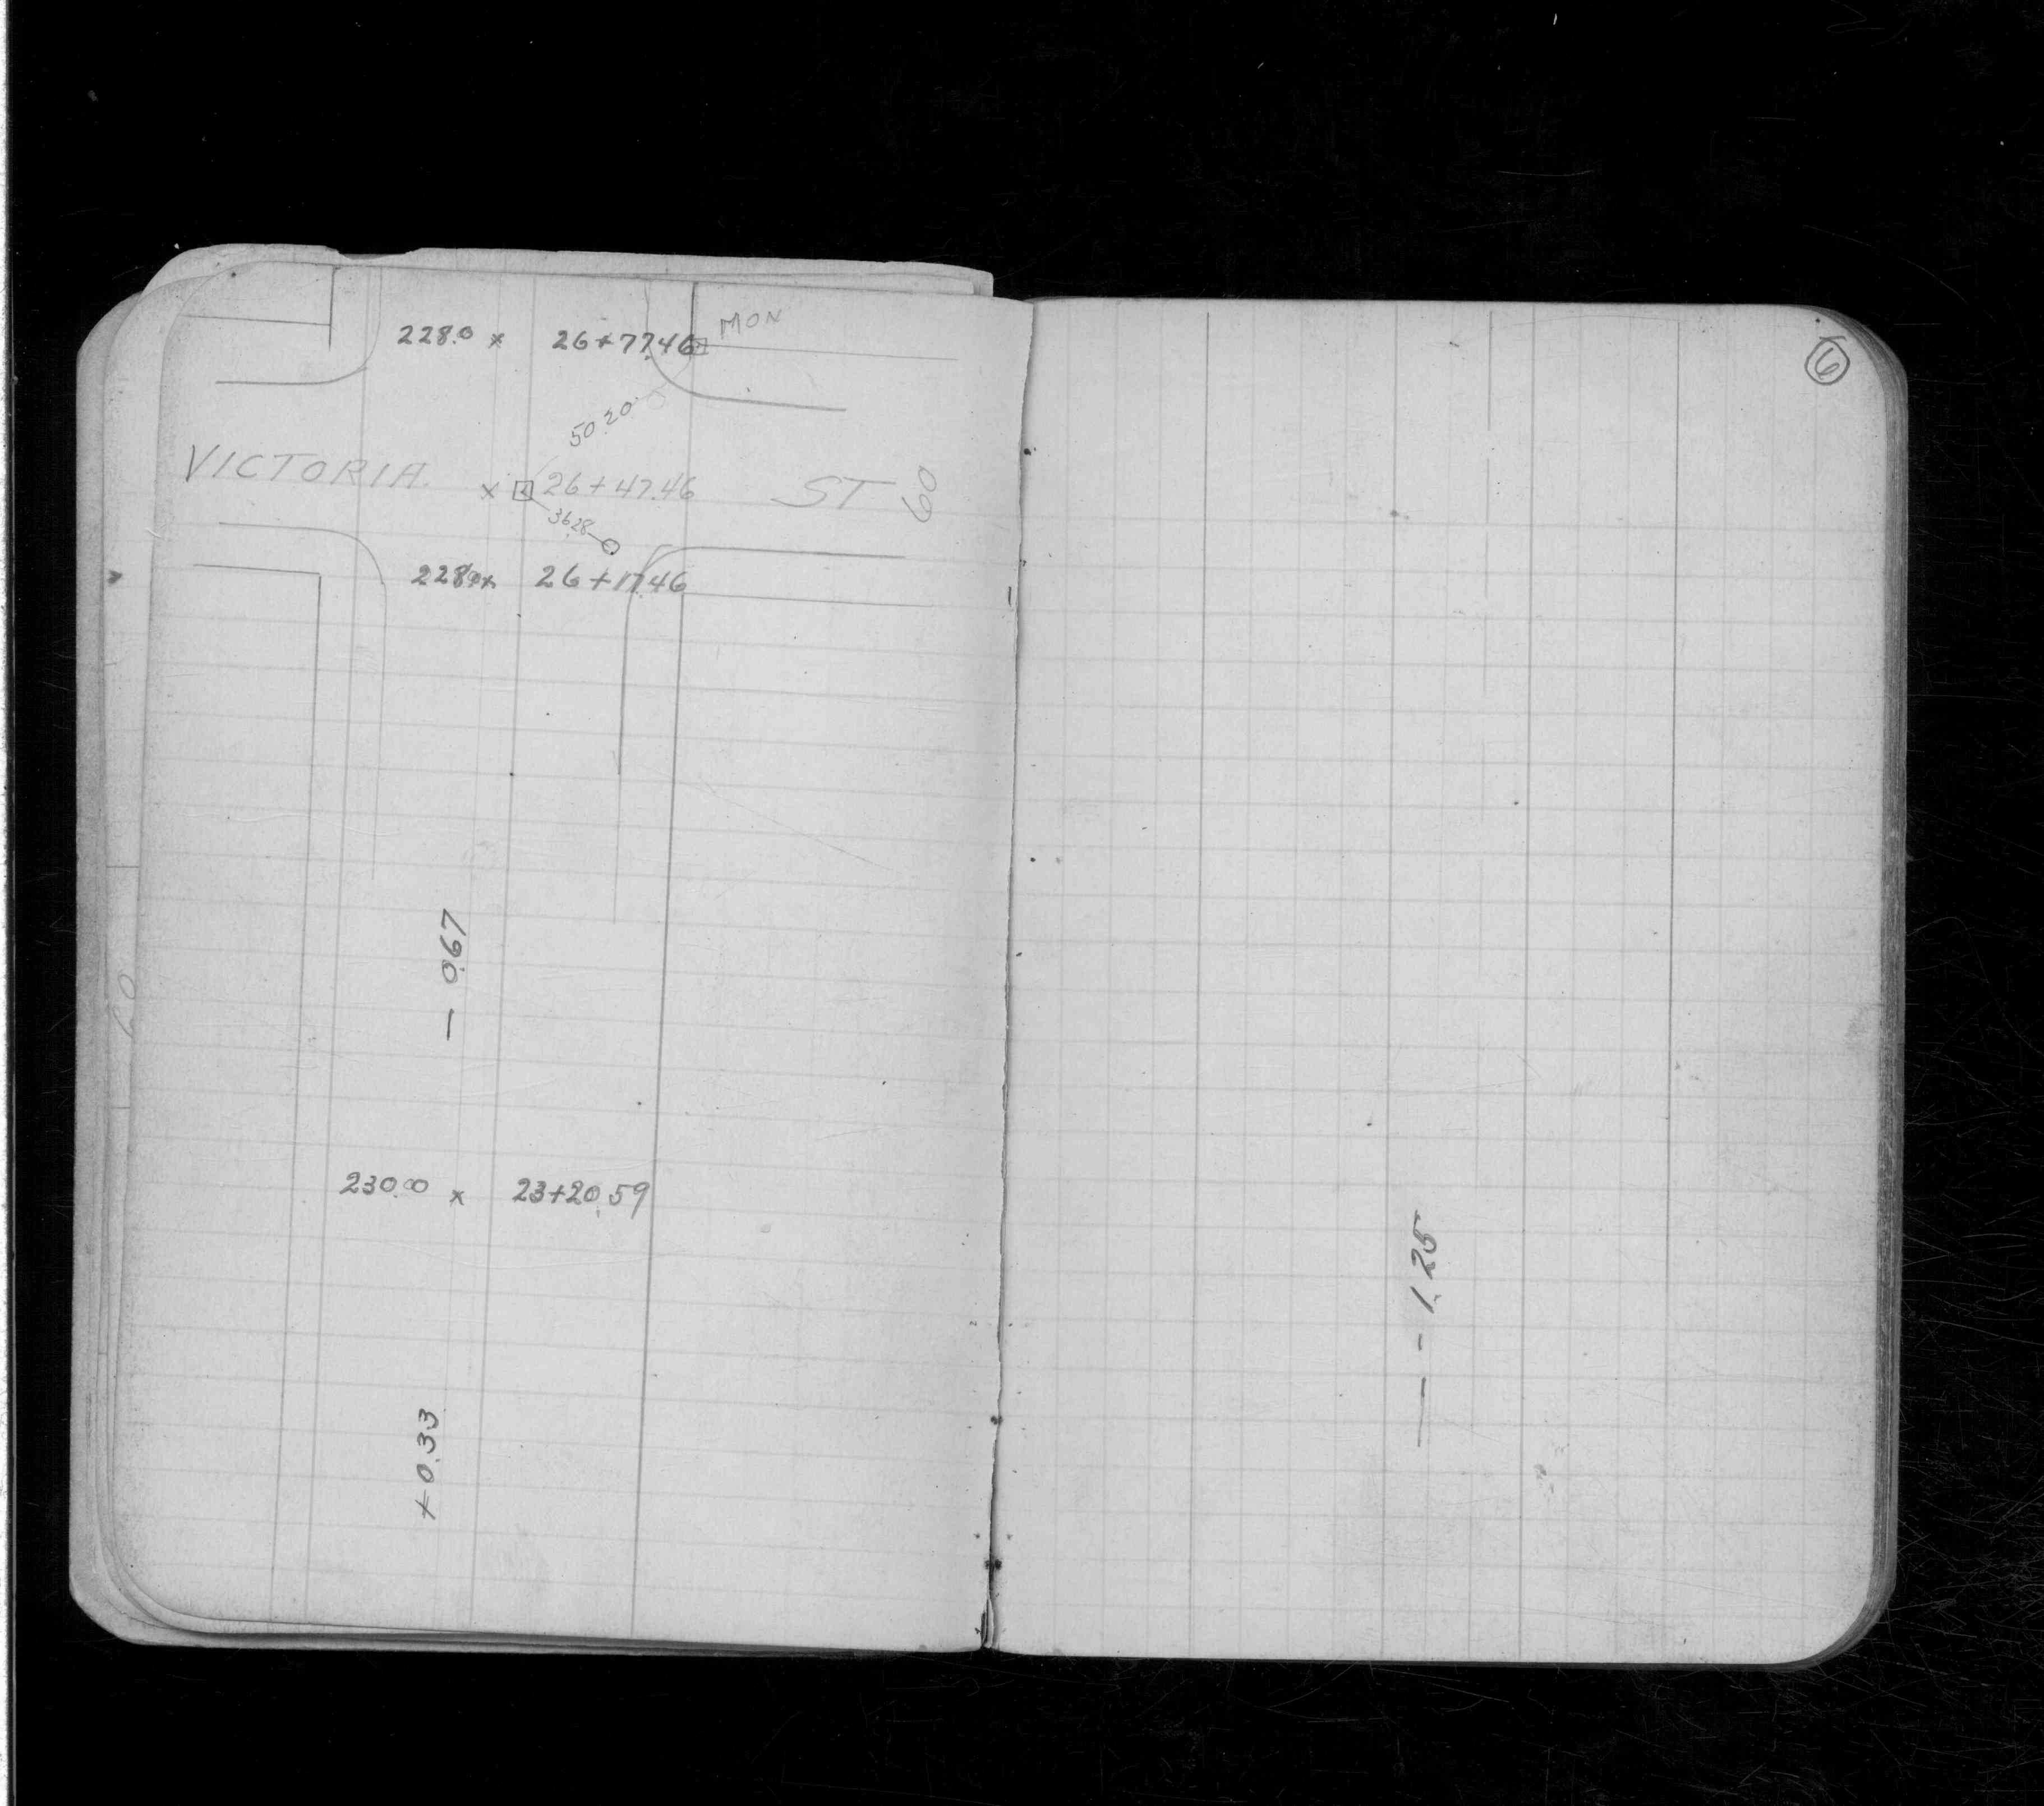 MON
228.0 x 26+77.46
50.20
VICTORIA. x 26+47.46 ST 60
36.28
228.0 x 26+17.46
- 0.67
60
230.00 x 23+20.59
+0.33
6
- - 1.25